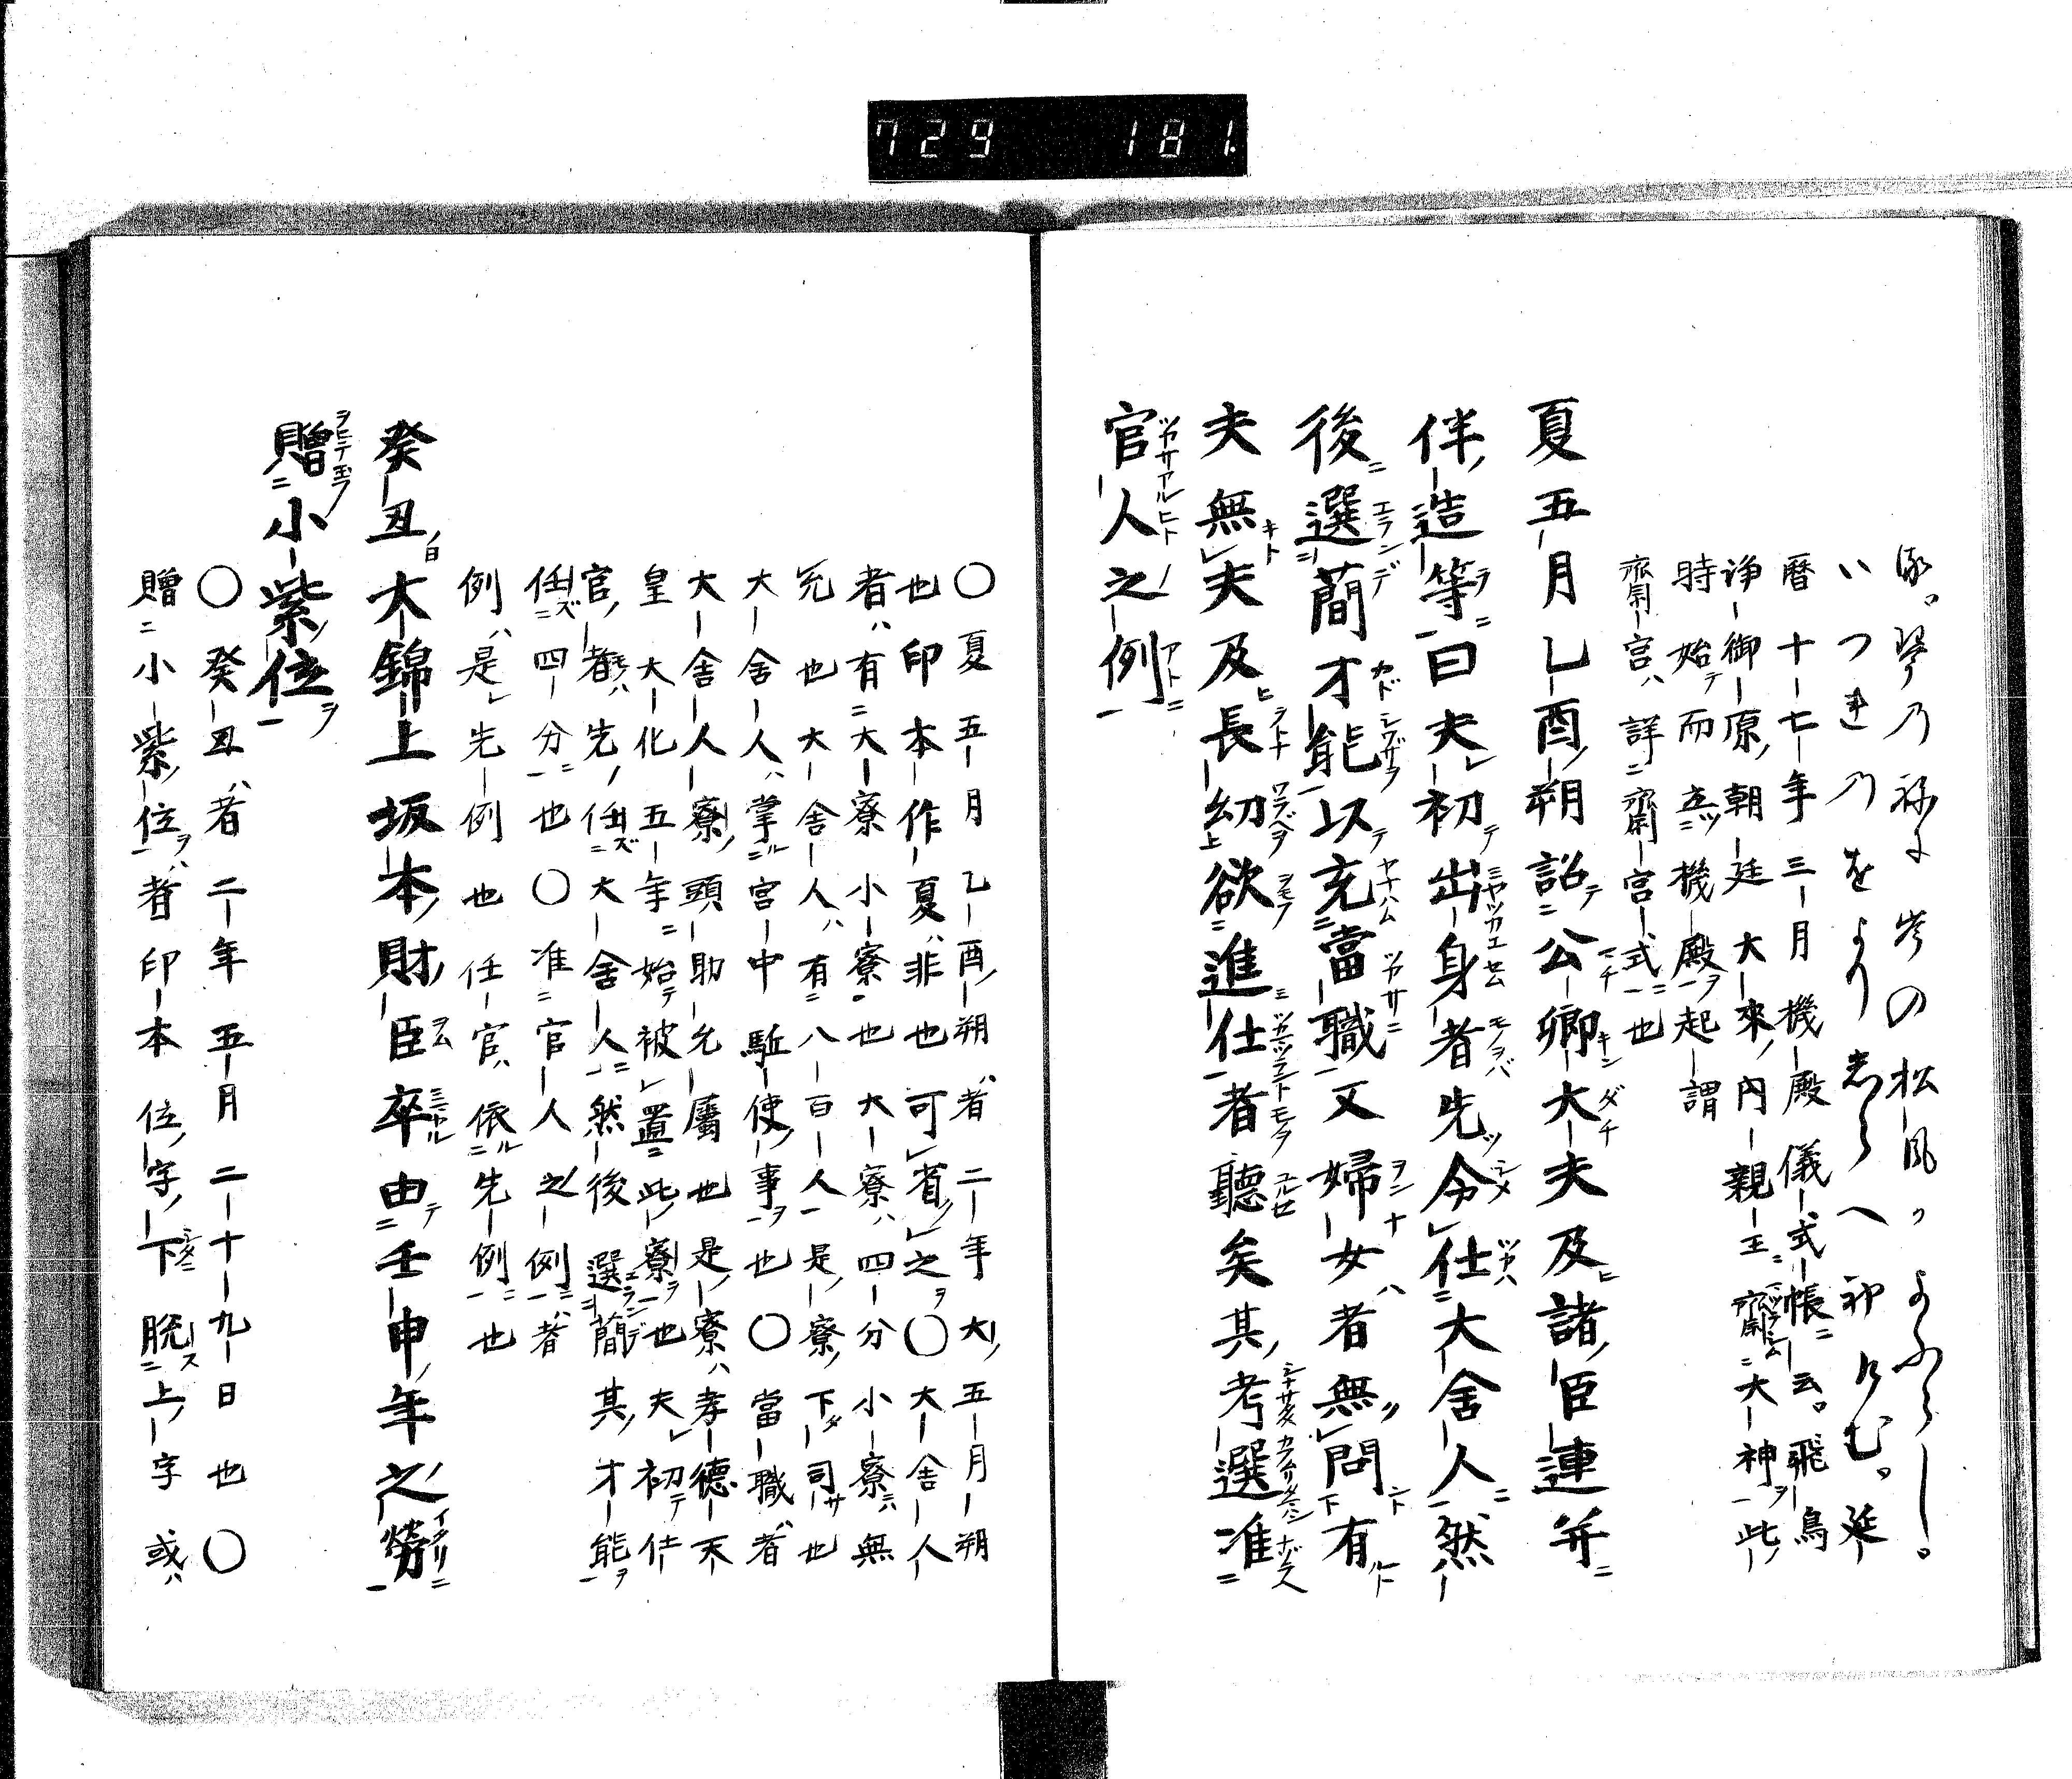 729 181
琴乃祢に岑の松風
いつれのをより志らへ初けむ延
暦十七年三月機殿儀式帳云飛鳥
浄御原朝廷大來内親王齋大神此
時始而立機殿起謂
齋宮詳齋宮式也
夏五月乙酉朔詔公卿大夫及諸臣連并
伴造等曰夫初出身者先令仕大舍人然
後選蕳才能以充當職又婦女者無問有
夫無夫及長幼欲進仕者聽矣其考選准
官人之例
〇夏五月乙酉朔者二年大五月朔
也印本作夏非也可省之〇大舍人
者有大寮小寮也大寮四分小寮無
允也大舍人有八百人是寮下司也
大舍人掌宮中駈使事也〇當職者
大舍人寮頭助允屬也是寮孝德天
皇大化五年始被置此寮也夫初仕
官者先任大舍人然後選蕳其才能
任四分也〇准官人之例者
例是先例也任官依先例也
癸丑大錦上坂本財臣卒由壬申年之勞
贈小紫位
〇癸丑者二年五月二十九日也〇
贈小紫位者印本位字下脱上字或